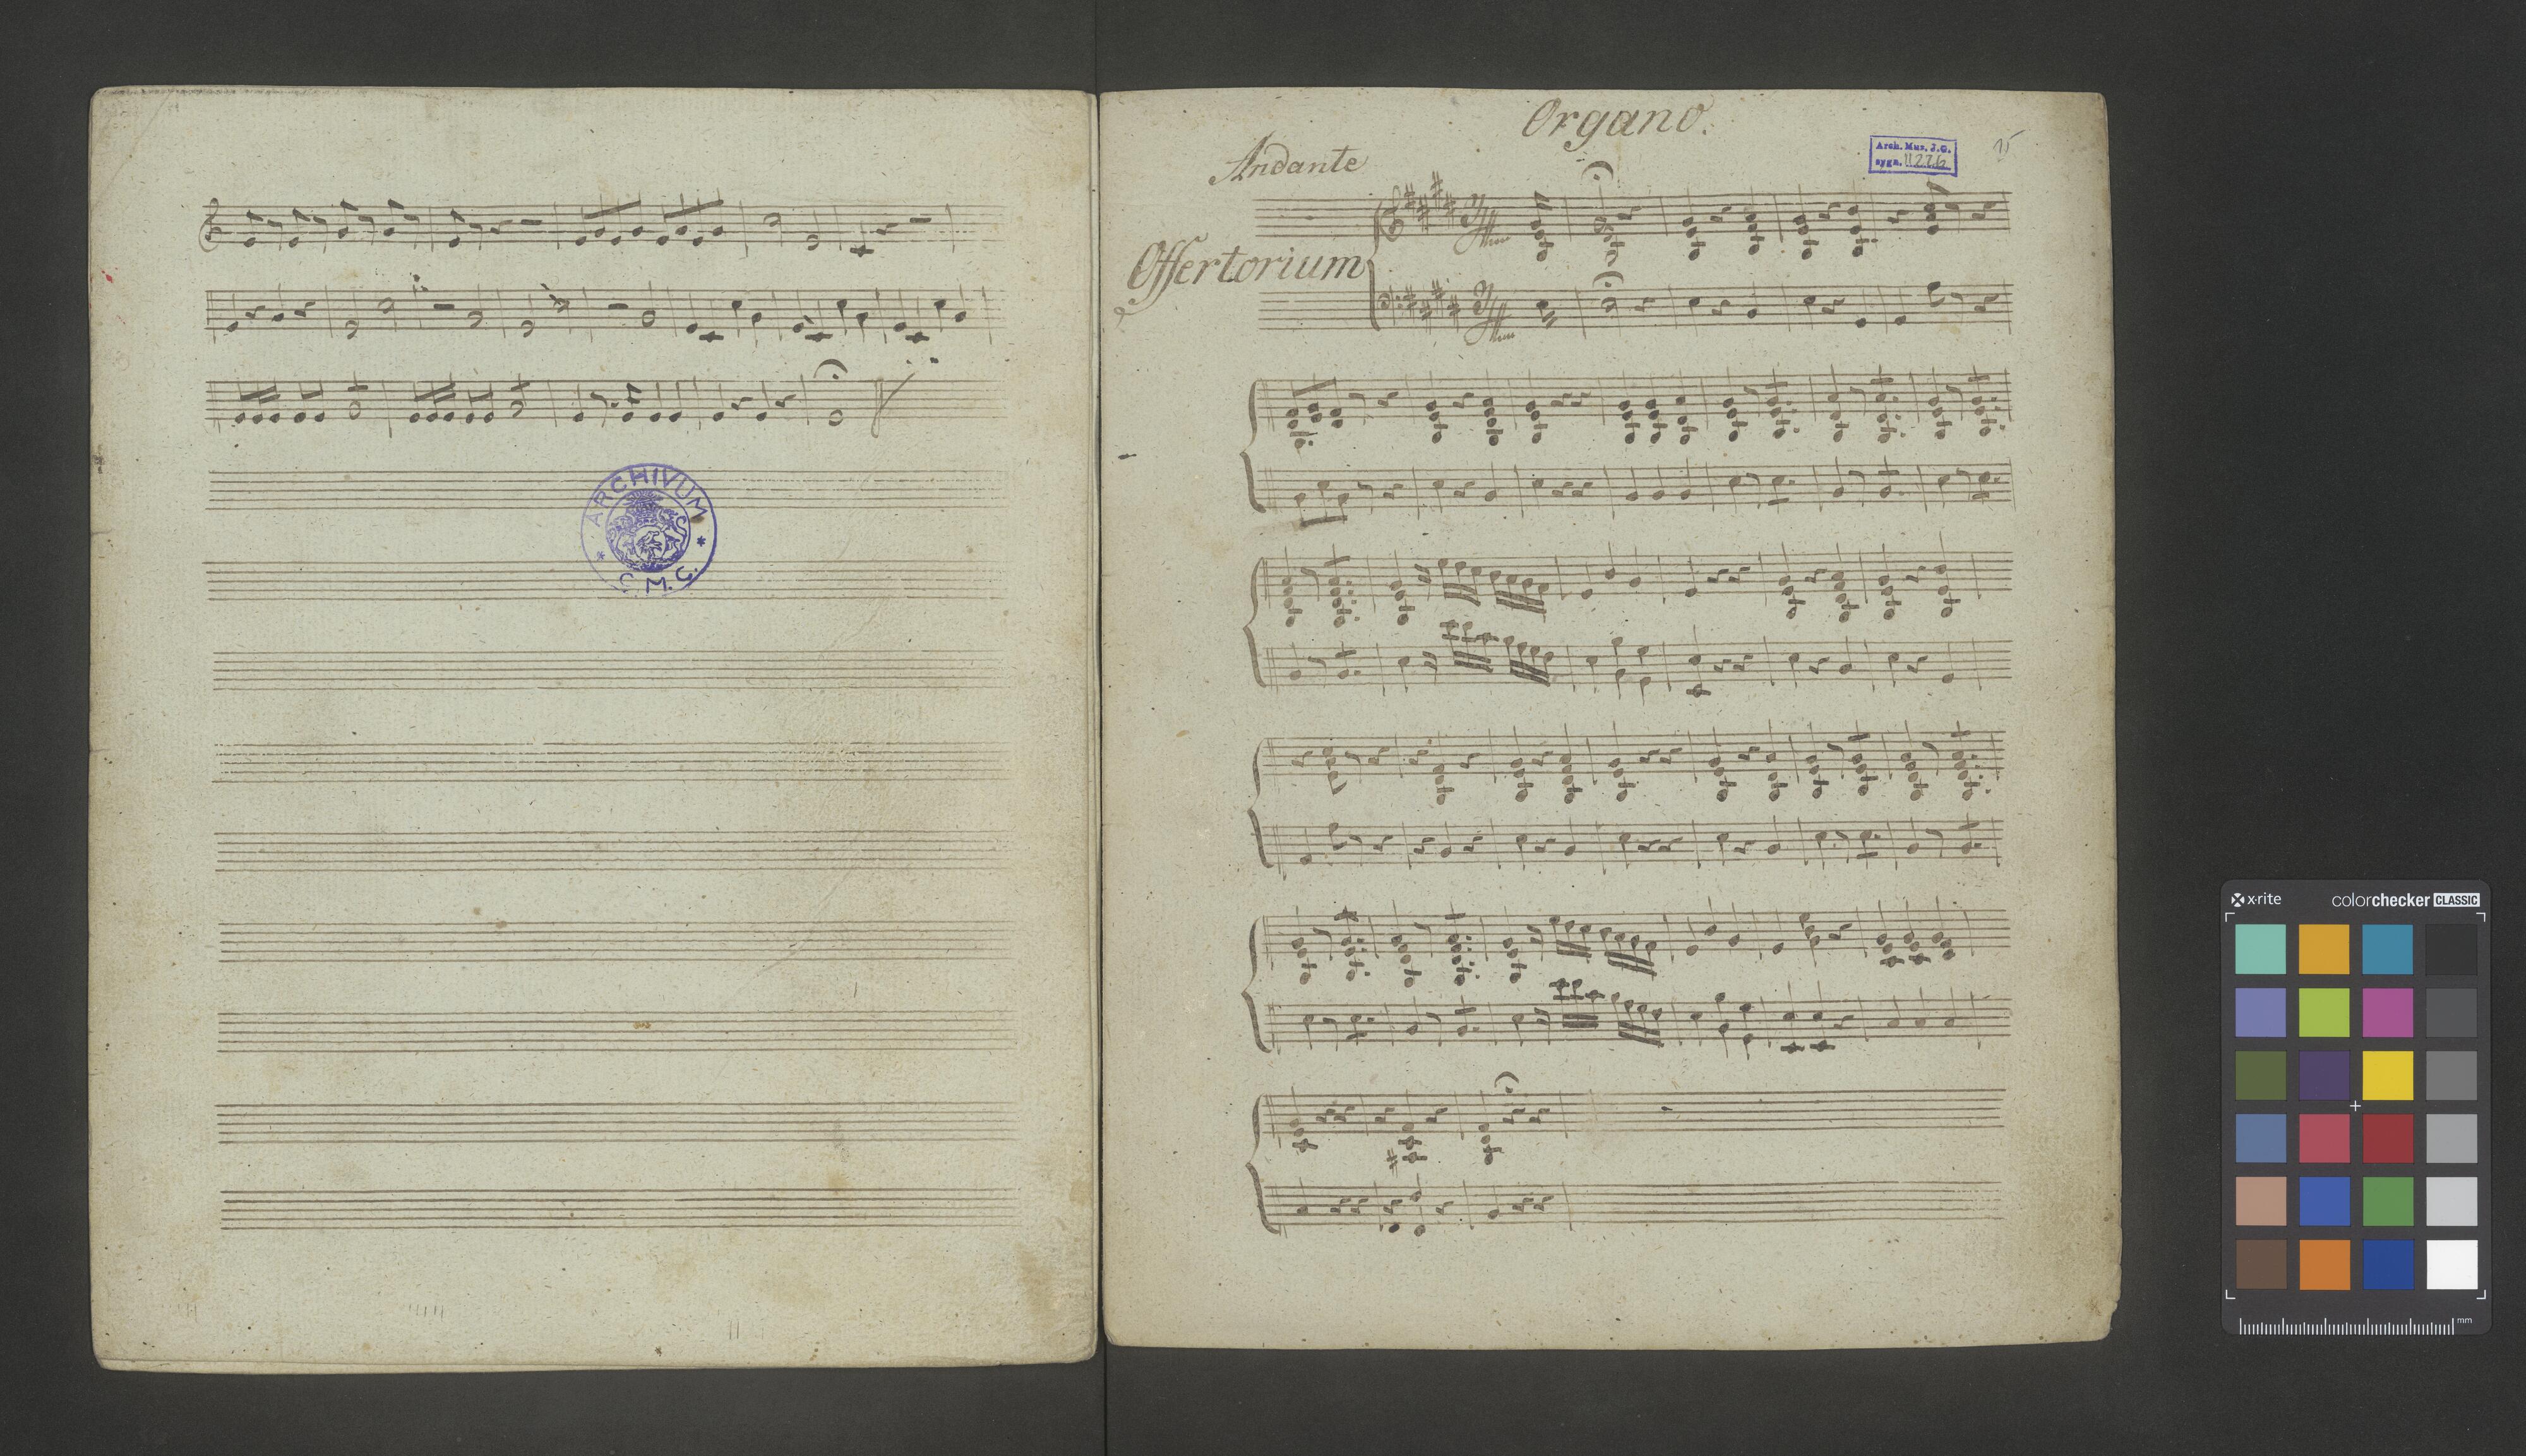 ARCHIVUM
C. M. C.
Organo.
Arch. Mus. J. G.
sygn. II 226
Andante
15
Offertorium
x·rite
colorchecker CLASSIC
mm